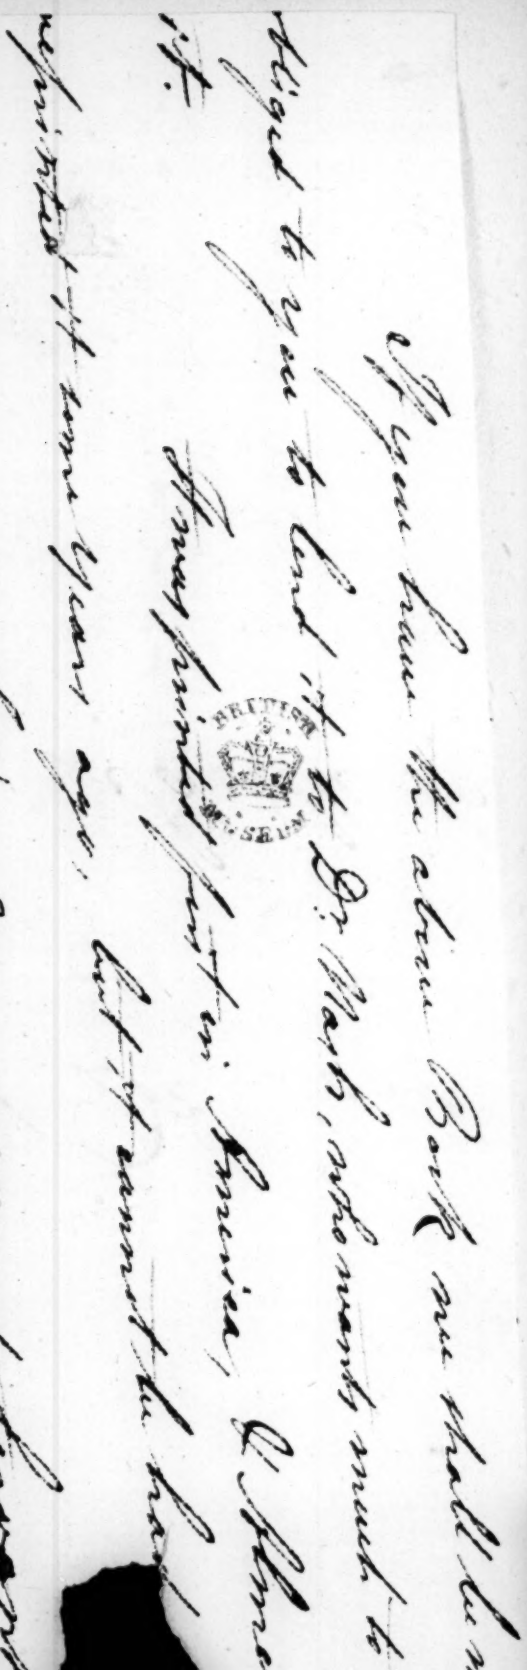 If you have the above Book we shall be
obliged to you to lend it to Dr. Marsh, who wants much to
it.
It was printed first in America, &
reprinted it some years ago, but it cannot be had
BRITISH
MUSEUM